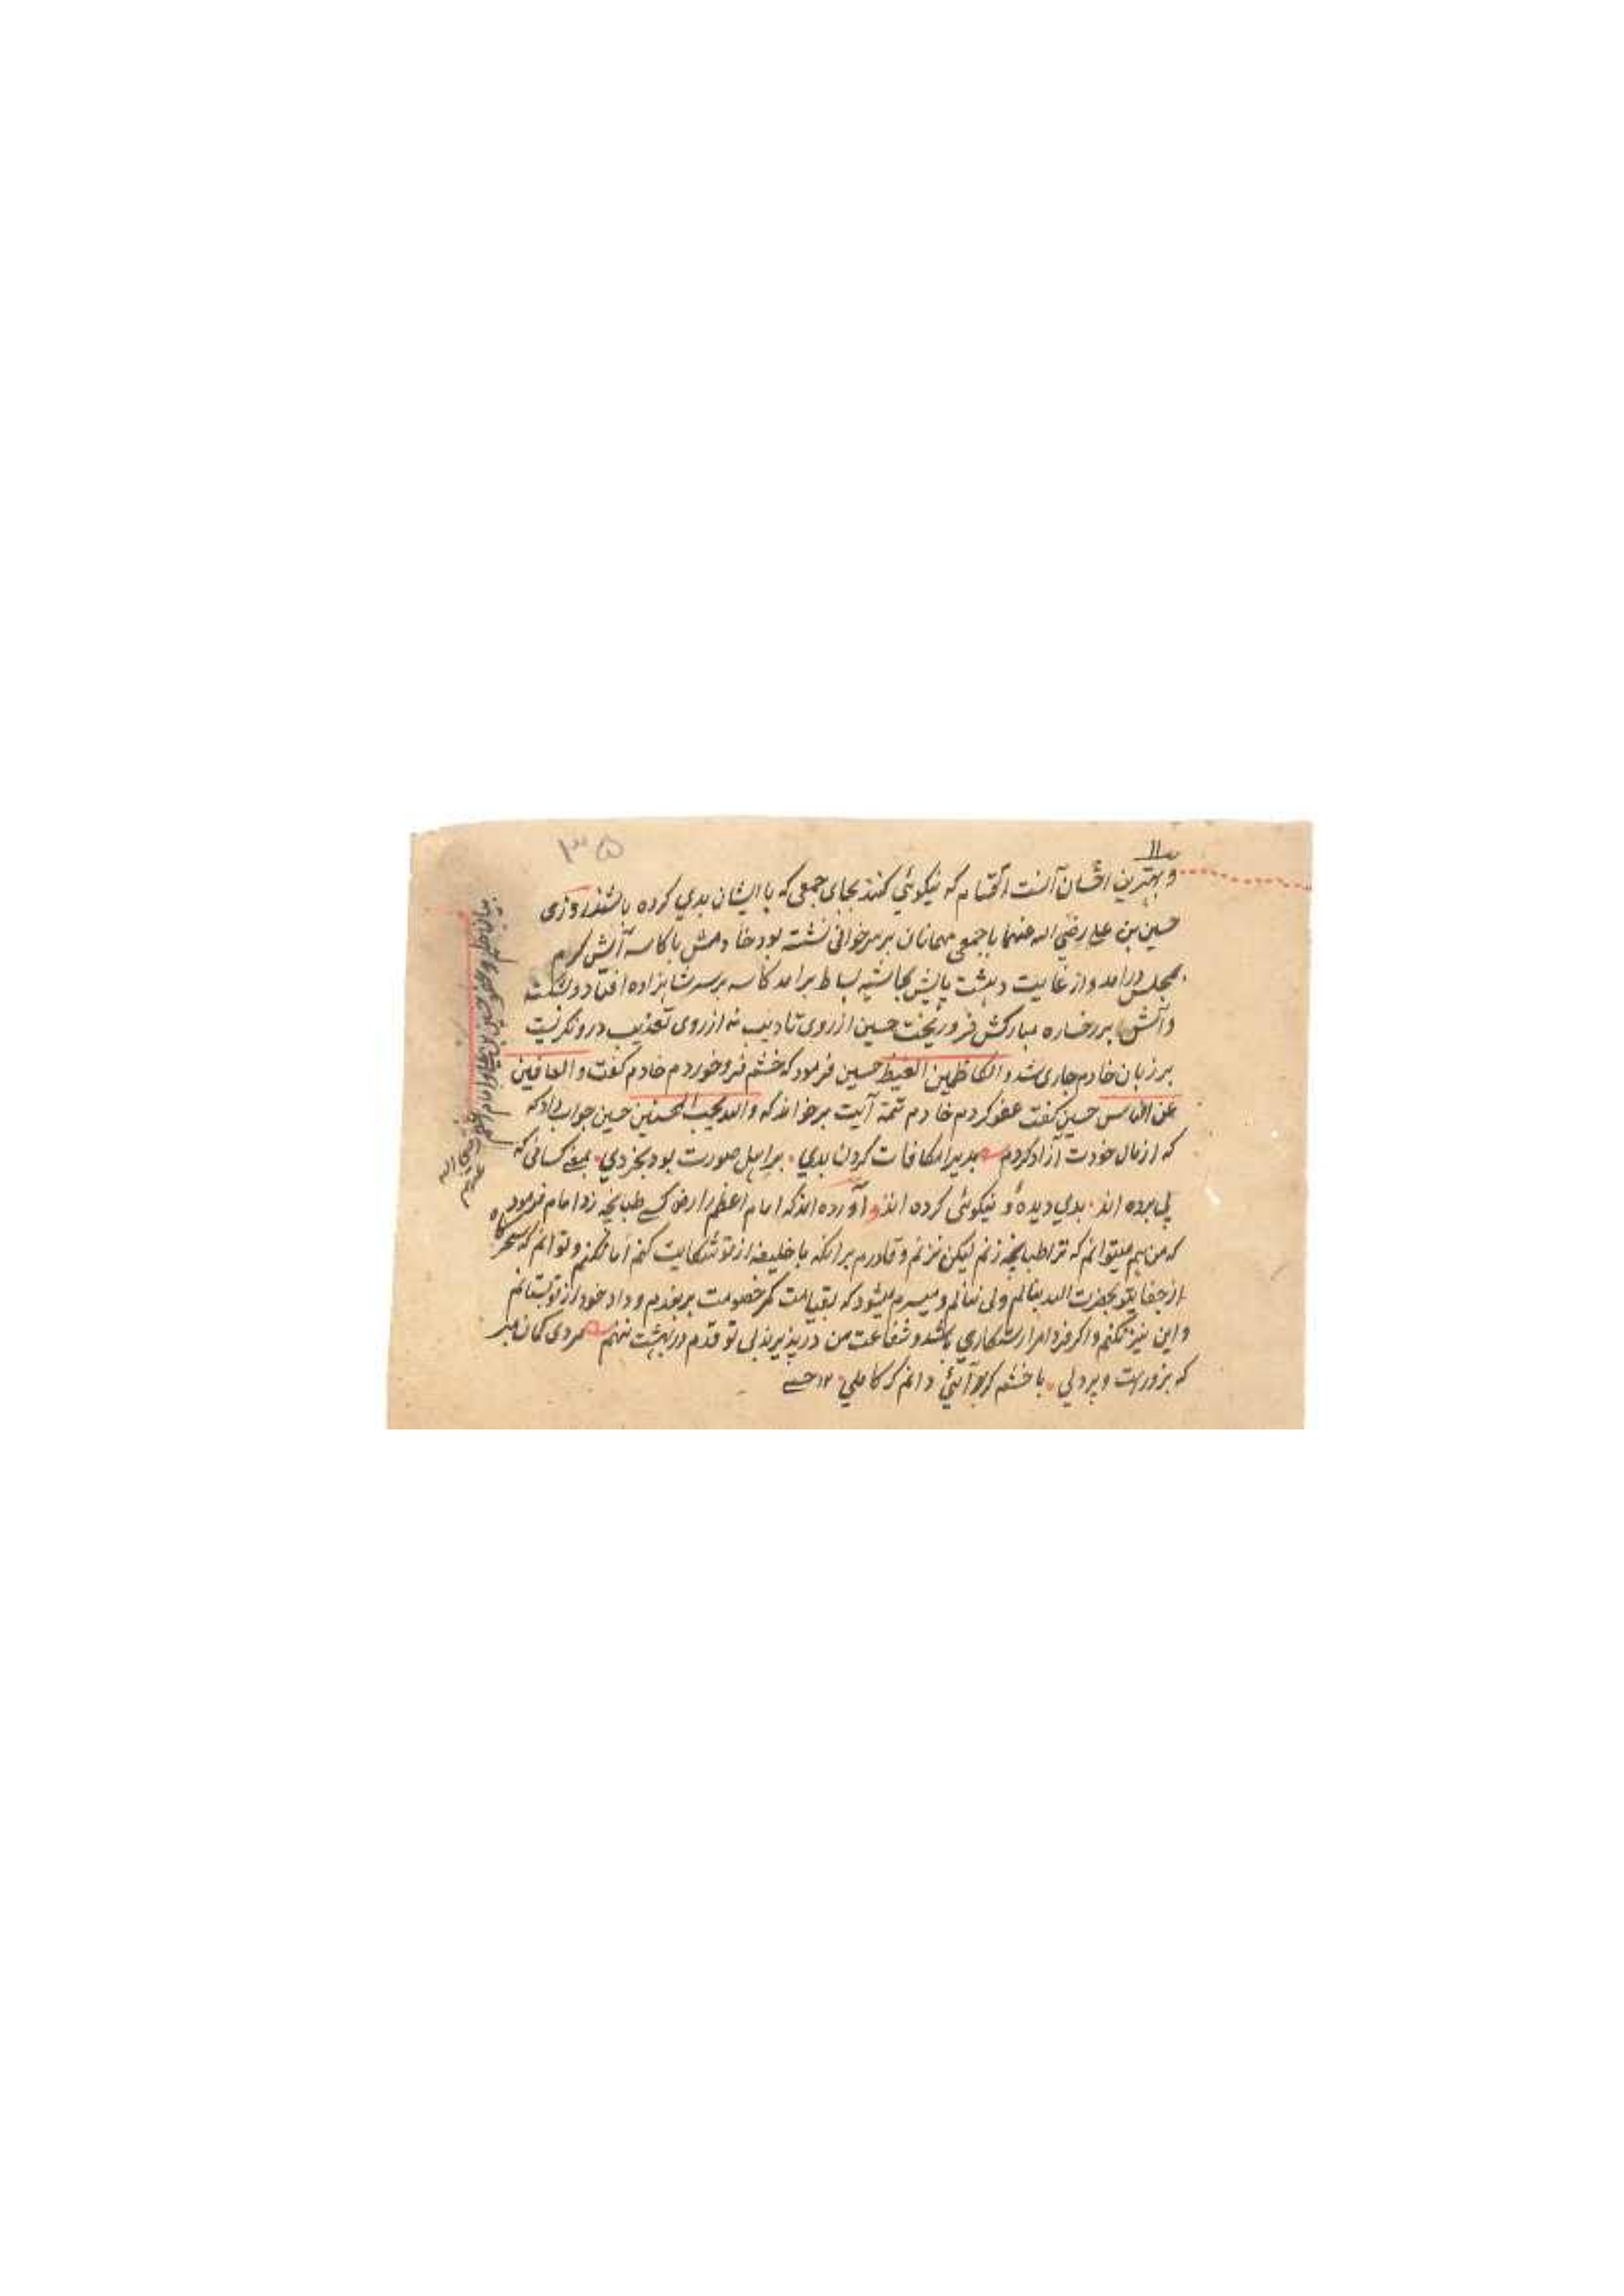 ۳۵
و بهترین احسان آنست که نیکوئی کنند بجای جمعی که با ایشان بدی کرده باشند روزی
حسین بن علی رضی الله عنهما با جمعی مهمانان بر سر خوانی نشسته بود خادمش با کاسه آش گرم
بمجلس درآمد و از غایت دهشت پایش بحاشیه بساط برآمد کاسه بر سر شاهزاده افتاد و بشکست
و آش بر رخساره مبارکش فرو ریخت حسین از روی تادیب نه از روی تعذیب درو نکریست
بر زبان خادم جاری شد و الکاظمین الغیظ حسین فرمود که خشم فرو خوردم خادم کفت و العافین
عن الناس حسین کفت عفو کردم خادم تتمة آیت برخواند که و الله یحب المحسنین حسین جواب داد که
که از مال خودت آزاد کردم بدیرا مکافات کردن بدی براهل صورت بود بخردی بمعنی کسانی که
پی برده اند بدی دیده و نیکوئی کرده اند و آورده اند که امام اعظم را رض کسی طبانچه زد امام فرمود
که من هم میتوانم که ترا طبانچه زنم لیکن نزنم و قادرم برانکه با خلیفه از تو شکایت کنم اما نکنم و توانم که سحرکاه
از جفای تو بحضرت الله بنالم ولی ننالم و میسرم میشود که بقیامت کمر خصومت بربندم و داد خود از تو بستانم
و این نیز نکنم و اکر فردا مرا رستکاری باشد و شفاعت من در پذیرند بی تو قدم در بهشت ننهم مردی کمان مبر
که بزورست و پردلی با خشم کر برآئی دانم که کاملی ۱۲ حسینی